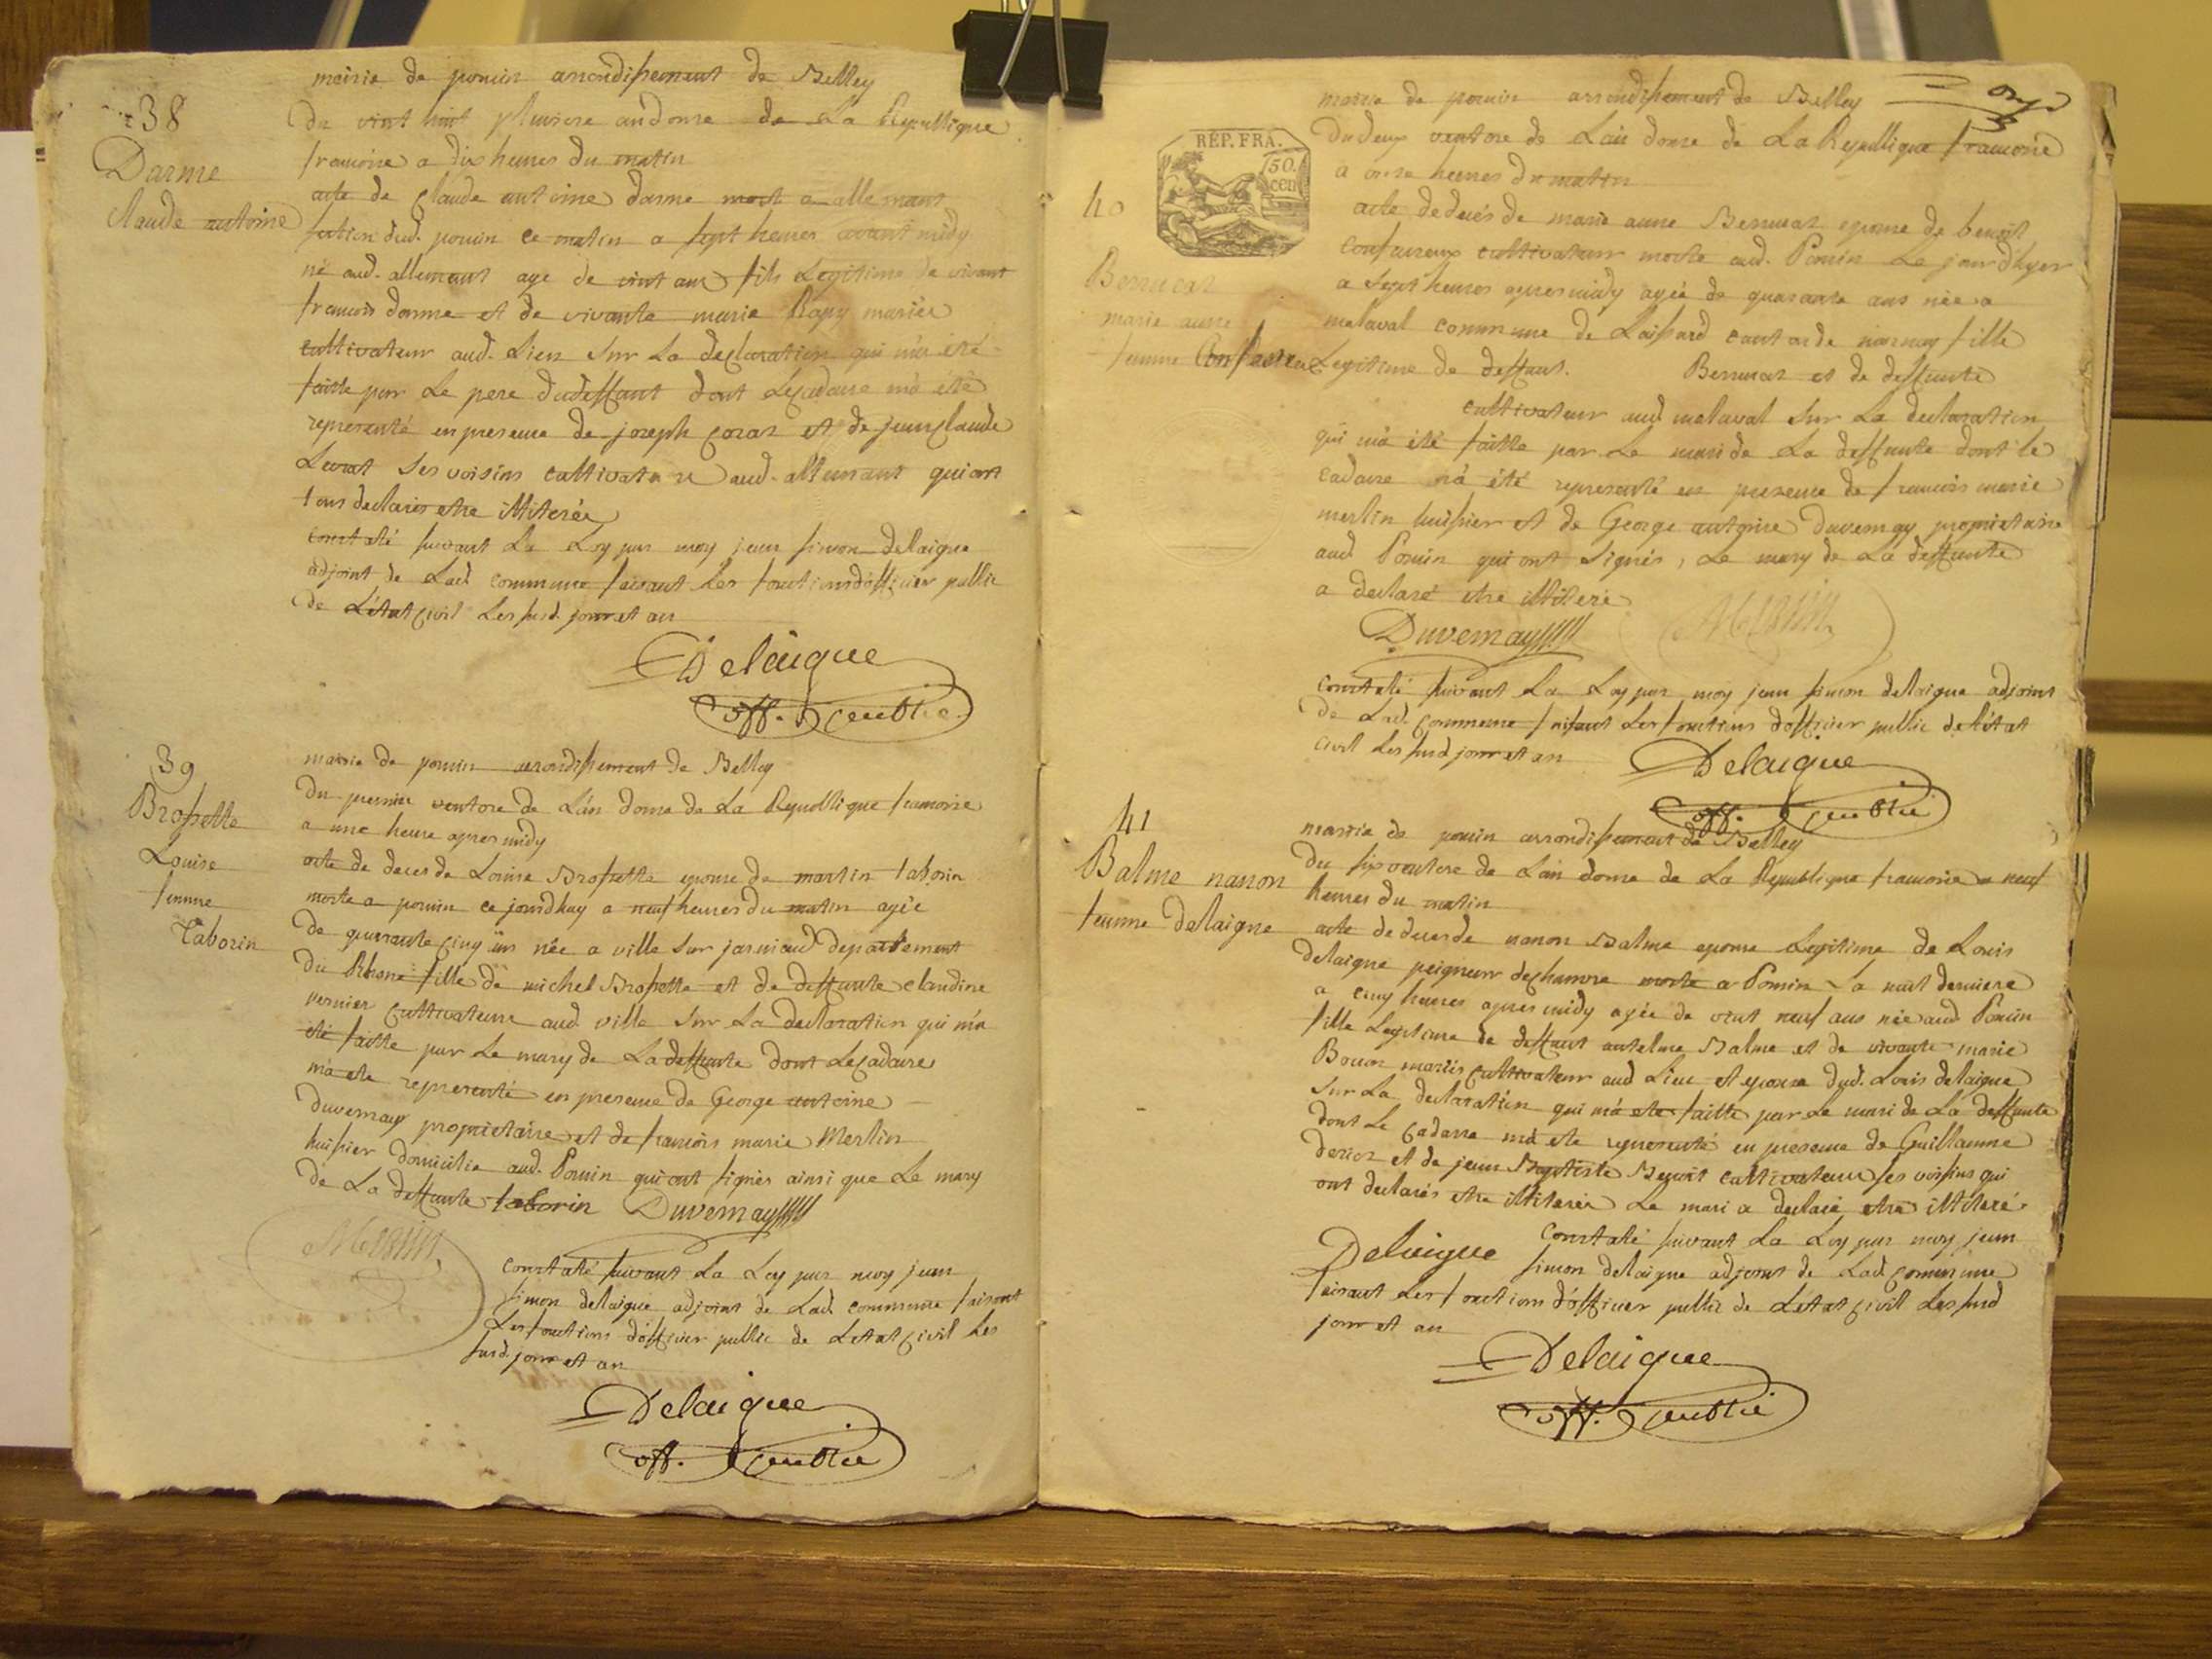 mairie de poncin arrondissement de Belley
38
du vint huit pluviose an douse de La Republique
francoise a dix heures du matin
Darme
Claude antoine
acte de Claude antoine darme mort a allemant
section dud. poncin ce matin a sept heures avant midy
né aud. allemant age de vint ans fils Legitime de vivant
francois darme et de vivante marie Rapy mariés
cultivateur aud. Lieu sur La declaration qui m'a été
faitte par Le pere dudeffunt dont Lecadavre m'a été
representé en presence de joseph coraz et de jean claude
Levrat ses voisins cultivateurs aud. allemant qui ont
tous declarés etre illiterés
constaté suivant La Loy par moy jean simon delaigue
adjoint de Lad commune faisant les fonctions d'officier public
de L'état civil Les susd. jour et an
Delaigue
off. public
39
mairie de poncin arrondissement de Belley
Brossette
Louise
femme
Taborin
du premier ventose de L'an douse de La Republique francoise
a une heure apres midy
acte de deces de Louise Brossette epouse de martin taborin
morte a poncin ce jourdhuy a neuf heures du matin agée
de quarante cinq ans née a ville sur jarniaud departement
du Rhone fille de michel Brossette et de deffunte claudine
pernier cultivateurs aud. ville sur La declaration qui m'a
été faitte par Le mary de Ladeffunte dont Lecadavre
m'a ete representé en presence de George antoine
Duvernay proprietaire et de francois marie Merlin
huissier domicilié aud. Poncin qui ont signés ainsi que Le mary
de La deffunte taborin Duvernay
Merlin
constaté suivant La Loy par moy jean
simon delaigue adjoint de Lad. commune faisant
Les fonctions d'officier public de Letat civil Les
susd. jour et an
Delaigue
off. public
mairie de poncin arrondissement de Belley
onze
REP. FRA.
50.
cen
du deux ventose de Lan douse de La Republique francoise
a onze heures du matin
40
Berrucaz
marie anne
femme Confavreux
acte de deces de marie anne Berruaz epouse de benoit
Confavreux cultivateur morte aud. Poncin Le jour dhyer
a sept heures apres midy agée de quarante ans née a
malaval commune de Laissard canton de nornay fille
Legitime de deffunt. Berruaz et de deffunte
cultivateur aud malaval sur La declaration
qui m'a été faitte par Le mari de La deffunte dont le
cadavre m'a été representé en presence de francois marie
merlin huissier et de George antoine duvernay proprietaire
aud Poncin qui ont signés, Le mary de La deffunte
a declaré etre illiteré
Duvernay Merlin
constaté suivant La Loy par moy jean simon delaigue adjoint
de Lad. commune faisant Les fonctions d'officier public de L'état
civil Les susd jour et an
Delaigue
off. public
41
Balme nanon
femme delaigue
mairie de poncin arrondissement de Belley
du six ventose de Lan douse de La Republique francoise a neuf
heures du matin
acte de deces de nanon Balme epouse Legitime de Louis
delaigue peigneur de chanvre morte a Poncin La nuit derniere
a cinq heures apres midy agée de vint neuf ans née aud Poncin
fille Legitime de deffunt antelme Balme et de vivante marie
Bouaz mariés cultivateur aud Lieu et epouse dud. Louis delaigue
sur La declaration qui m'a ete faitte par Le mari de La deffunte
dont Le cadavre m'a ete representé en presence de Guillaume
derioz et de jean Baptiste Benoit cultivateurs ses voisins qui
ont declarés etre illiterés Le mari a declaré etre illiteré.
Delaigue constaté suivant La Loy par moy jean
simon delaigue adjoint de Lad commune
faisant Les fonctions d'officier public de Letat civil Les susd
jour et an
Delaigue
off. public